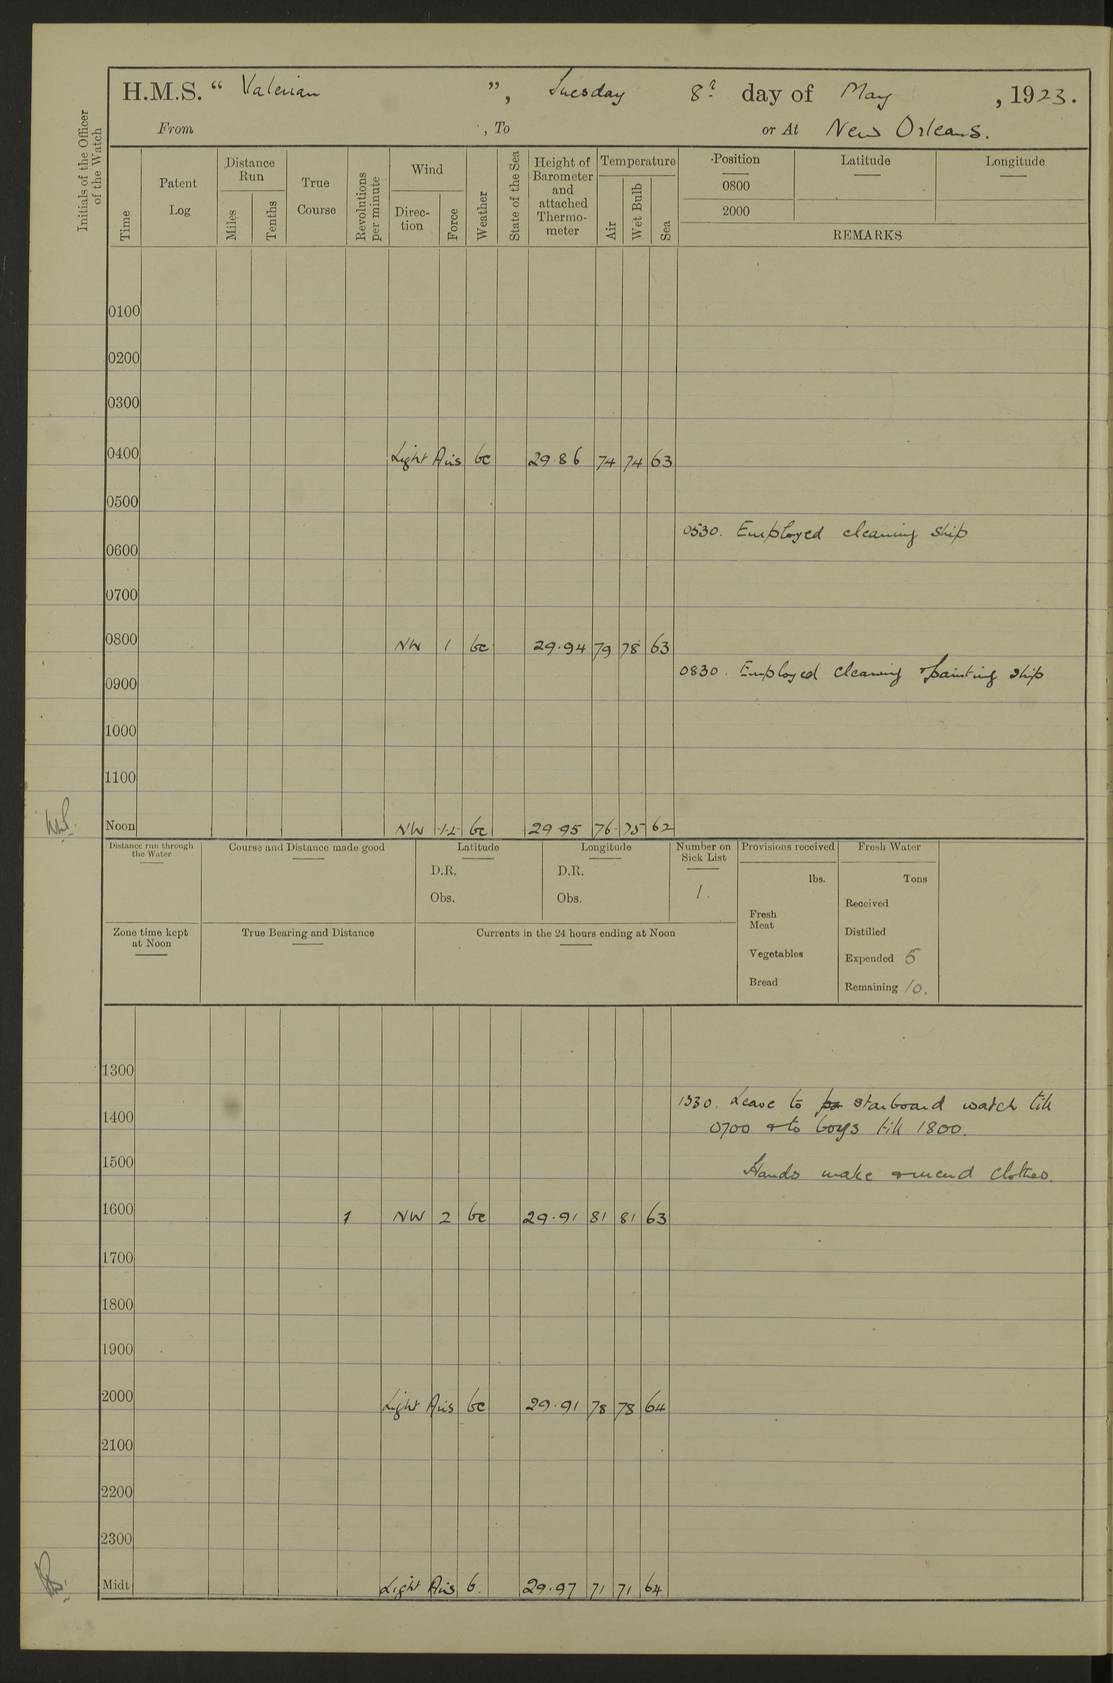 H.M.S. " Valerian ", Tuesday 8th day of May, 1923.
From , To or At New Orleans.
Initials of the Officer of the Watch
Time
Patent Log
Distance Run
Miles
Tenths
True Course
Revolutions per minute
Wind
Direc-tion
Force
Weather
State of the Sea
Height of Barometer and attached Thermo-meter
Temperature
Air
Wet Bulb
Sea
Position
Latitude
Longitude
0800
2000
REMARKS
0100
0200
0300
0400 Light Airs bc 29.86 74 74 63
0500
0530. Employed cleaning ship
0600
0700
0800 NW 1 bc 29.94 79 78 63
0830. Employed cleaning & painting ship
0900
1000
1100
Noon NW 1-2 bc 29.95 76 75 62
Distance run through the Water
Course and Distance made good
Latitude
D.R.
Obs.
Longitude
D.R.
Obs.
Number on Sick List
1.
Provisions received
lbs.
Fresh Meat
Vegetables
Bread
Fresh Water
Tons
Received
Distilled
Expended 5
Remaining 10.
Zone time kept at Noon
True Bearing and Distance
Currents in the 24 hours ending at Noon
1300
1330. Leave to starboard watch till
1400
0700 & to boys till 1800.
1500
Hands make & mend clothes.
1600 1 NW 2 bc 29.91 81 81 63
1700
1800
1900
2000 Light Airs bc 29.91 78 78 64
2100
2200
2300
Midt. Light Airs b. 29.97 71 71 64